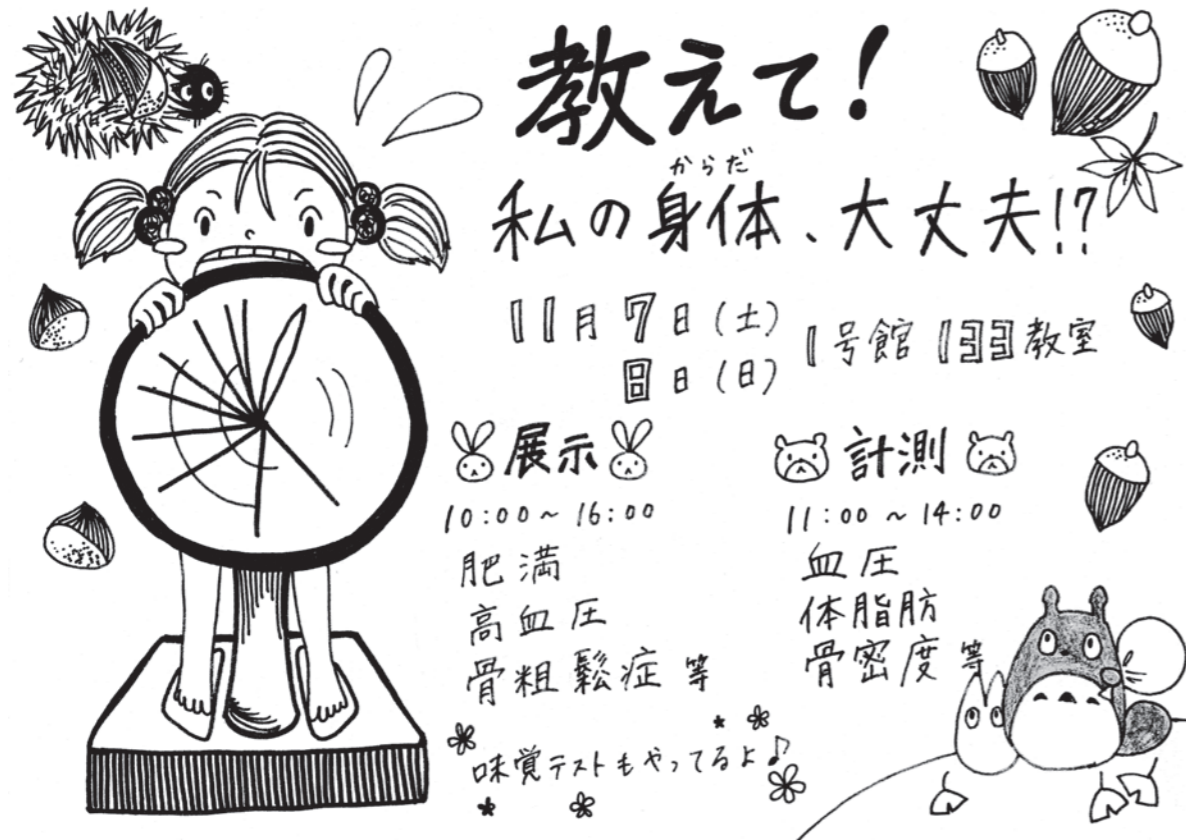 教えて!
からだ
私の身体、大丈夫!?
11月7日(土)
8日(日)
1号館 133教室
展示
10:00~16:00
肥満
高血圧
骨粗鬆症 等
計測
11:00~14:00
血圧
体脂肪
骨密度 等
味覚テストもやってるよ♪